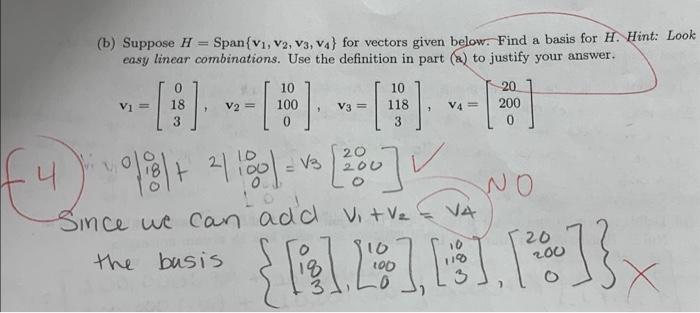 (b) Suppose H = Span{v1, v2, v3, v4} for vectors given below. Find a basis for H. Hint: Look
easy linear combinations. Use the definition in part (a) to justify your answer.
v1 = [0 18 3], v2 = [10 100 0], v3 = [10 118 3], v4 = [20 200 0]
-4 0[0 18 0] + 2[10 100 0] = v3 [20 200 0] ✓
NO
Since we can add v1 + v2 = v4
the basis {[0 18 3], [10 100 0], [10 118 3], [20 200 0]} ×